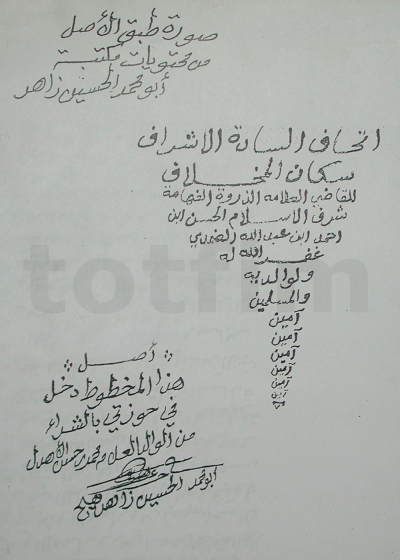 صورة طبق الأصل
من محتويات مكتبة
أبو محمد الحسين زاهر
اتحاف السادة الاشراف
سكان المخلاف
للقاضي العلامه الذروة الفهامة
شرف الاسلام الحسن ابن
احمد ابن عبد الله الضمدي
غفر الله له
ولوالديه
والمسلمين
آمين
آمين
آمين
آمين
آمين
آمين
أصل
هذا المخطوط دخل
في حوزتي بالشراء
من الوالد العلامه محمد حسن الأهدل
أبو محمد الحسين زاهر
totfim